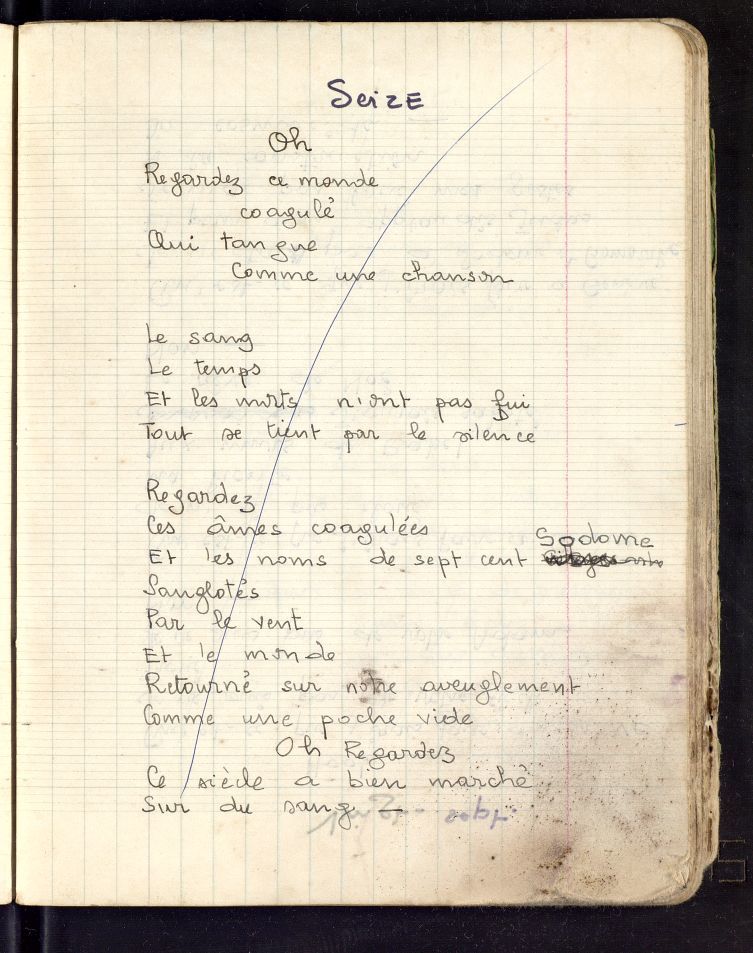 Seize
Oh
Regardez ce monde
coagulé
Qui tangue
Comme une chanson
Le sang
Le temps
Et les morts n'ont pas fui
Tout se tient par le silence
Regardez
Ces âmes coagulées
Sodome
Et les noms de sept cent
Sanglotés
Par le vent
Et le monde
Retourné sur notre aveuglement
Comme une poche vide
Oh Regardez
Ce siècle a bien marché
Sur du sang —